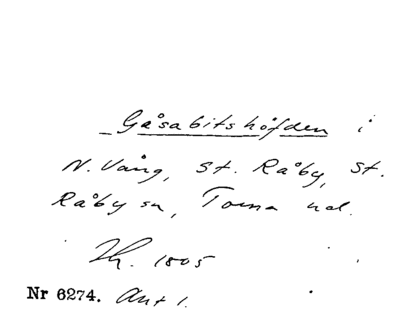 _ Gåsabitshöfden i
N. Vång, St. Råby, St.
Råby sn, Torna hd.
1805
Nr 6274. Ant 1.